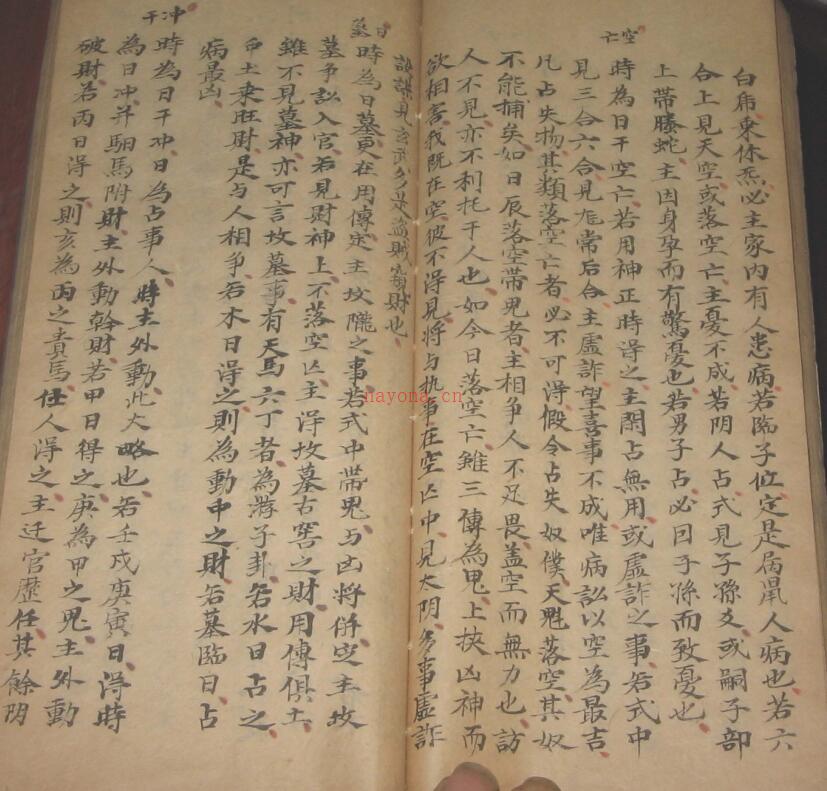 白虎乘休炁必主家内有人患病若臨子位定是屬鼠人病也若六
合上見天空或落空亡主憂不成若阴人占式見子孫爻或嗣子部
上帶螣蛇主因身孕而有驚憂也若男子占必因子孫而致憂也
空亡
時為日干空亡若用神正時淂之主閑占無用或虛詐之事若式中
見三合六合見龙常后合主虛詐望喜事不成唯病訟以空為最吉
凡占失物其類落空亡者必不可淂假令占失奴僕天魁落空其奴
不能捕矣如日辰落空帶鬼者主相争人不足畏盖空而無力也訪
人不見亦不利托于人也如今日落空亡雖三傳為鬼上挟凶神而
欲相害我既在空彼不淂見将与执事在空亡中見太阴多事虛詐
見玄武多失盗賊窃財也
日墓
時為日墓更在用傳定主坟隴之事若式中帶鬼与凶将併定主坟
墓争訟入官若見財神上不落空亡主淂坟墓古窖之財用傳俱土
雖不見墓神亦可言坟墓事有天馬六丁者為游子卦若水日占之
土乘旺尉是与人相争若木日淂之則為動中之財若墓臨日占
病最凶
冲干
時為日干冲日為占事人時主外動此大略也若壬戌庚寅日淂時
為日冲并駟馬附財主外動幹財若甲日得之庚為甲之鬼主外動
破財若丙日淂之則亥為丙之貴馬任人淂之主迁官歷任其餘阴
nayona.cn